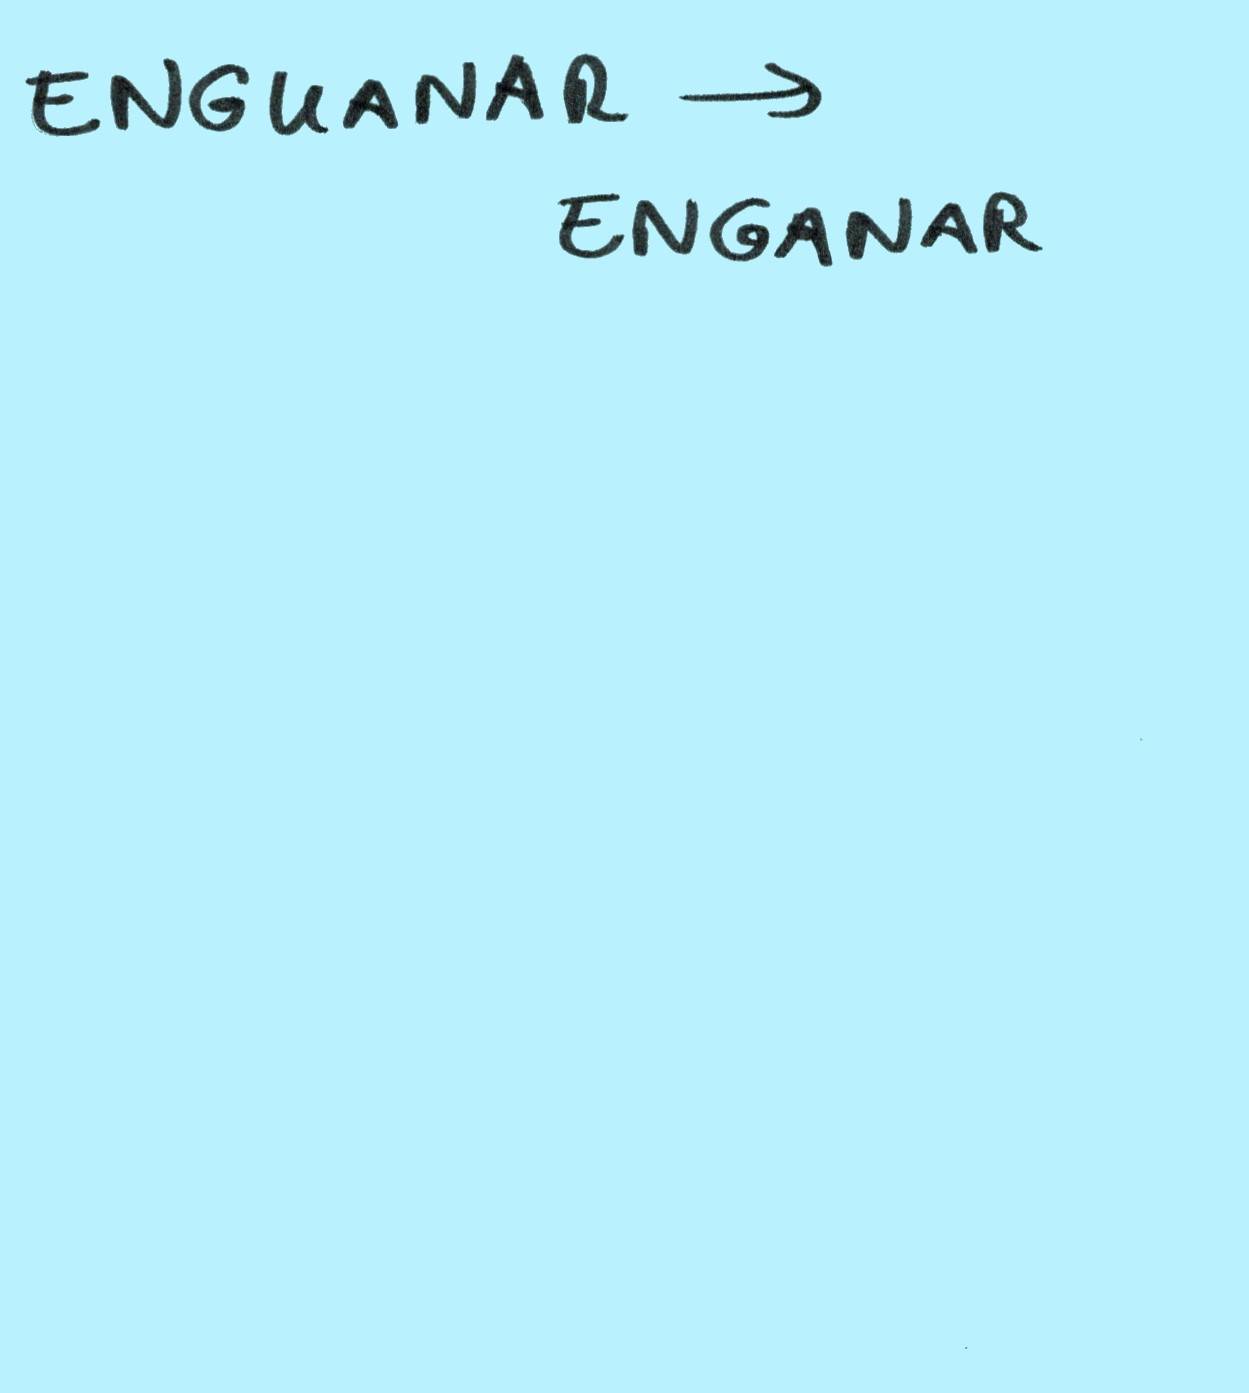 ENGUANAR →
ENGANAR